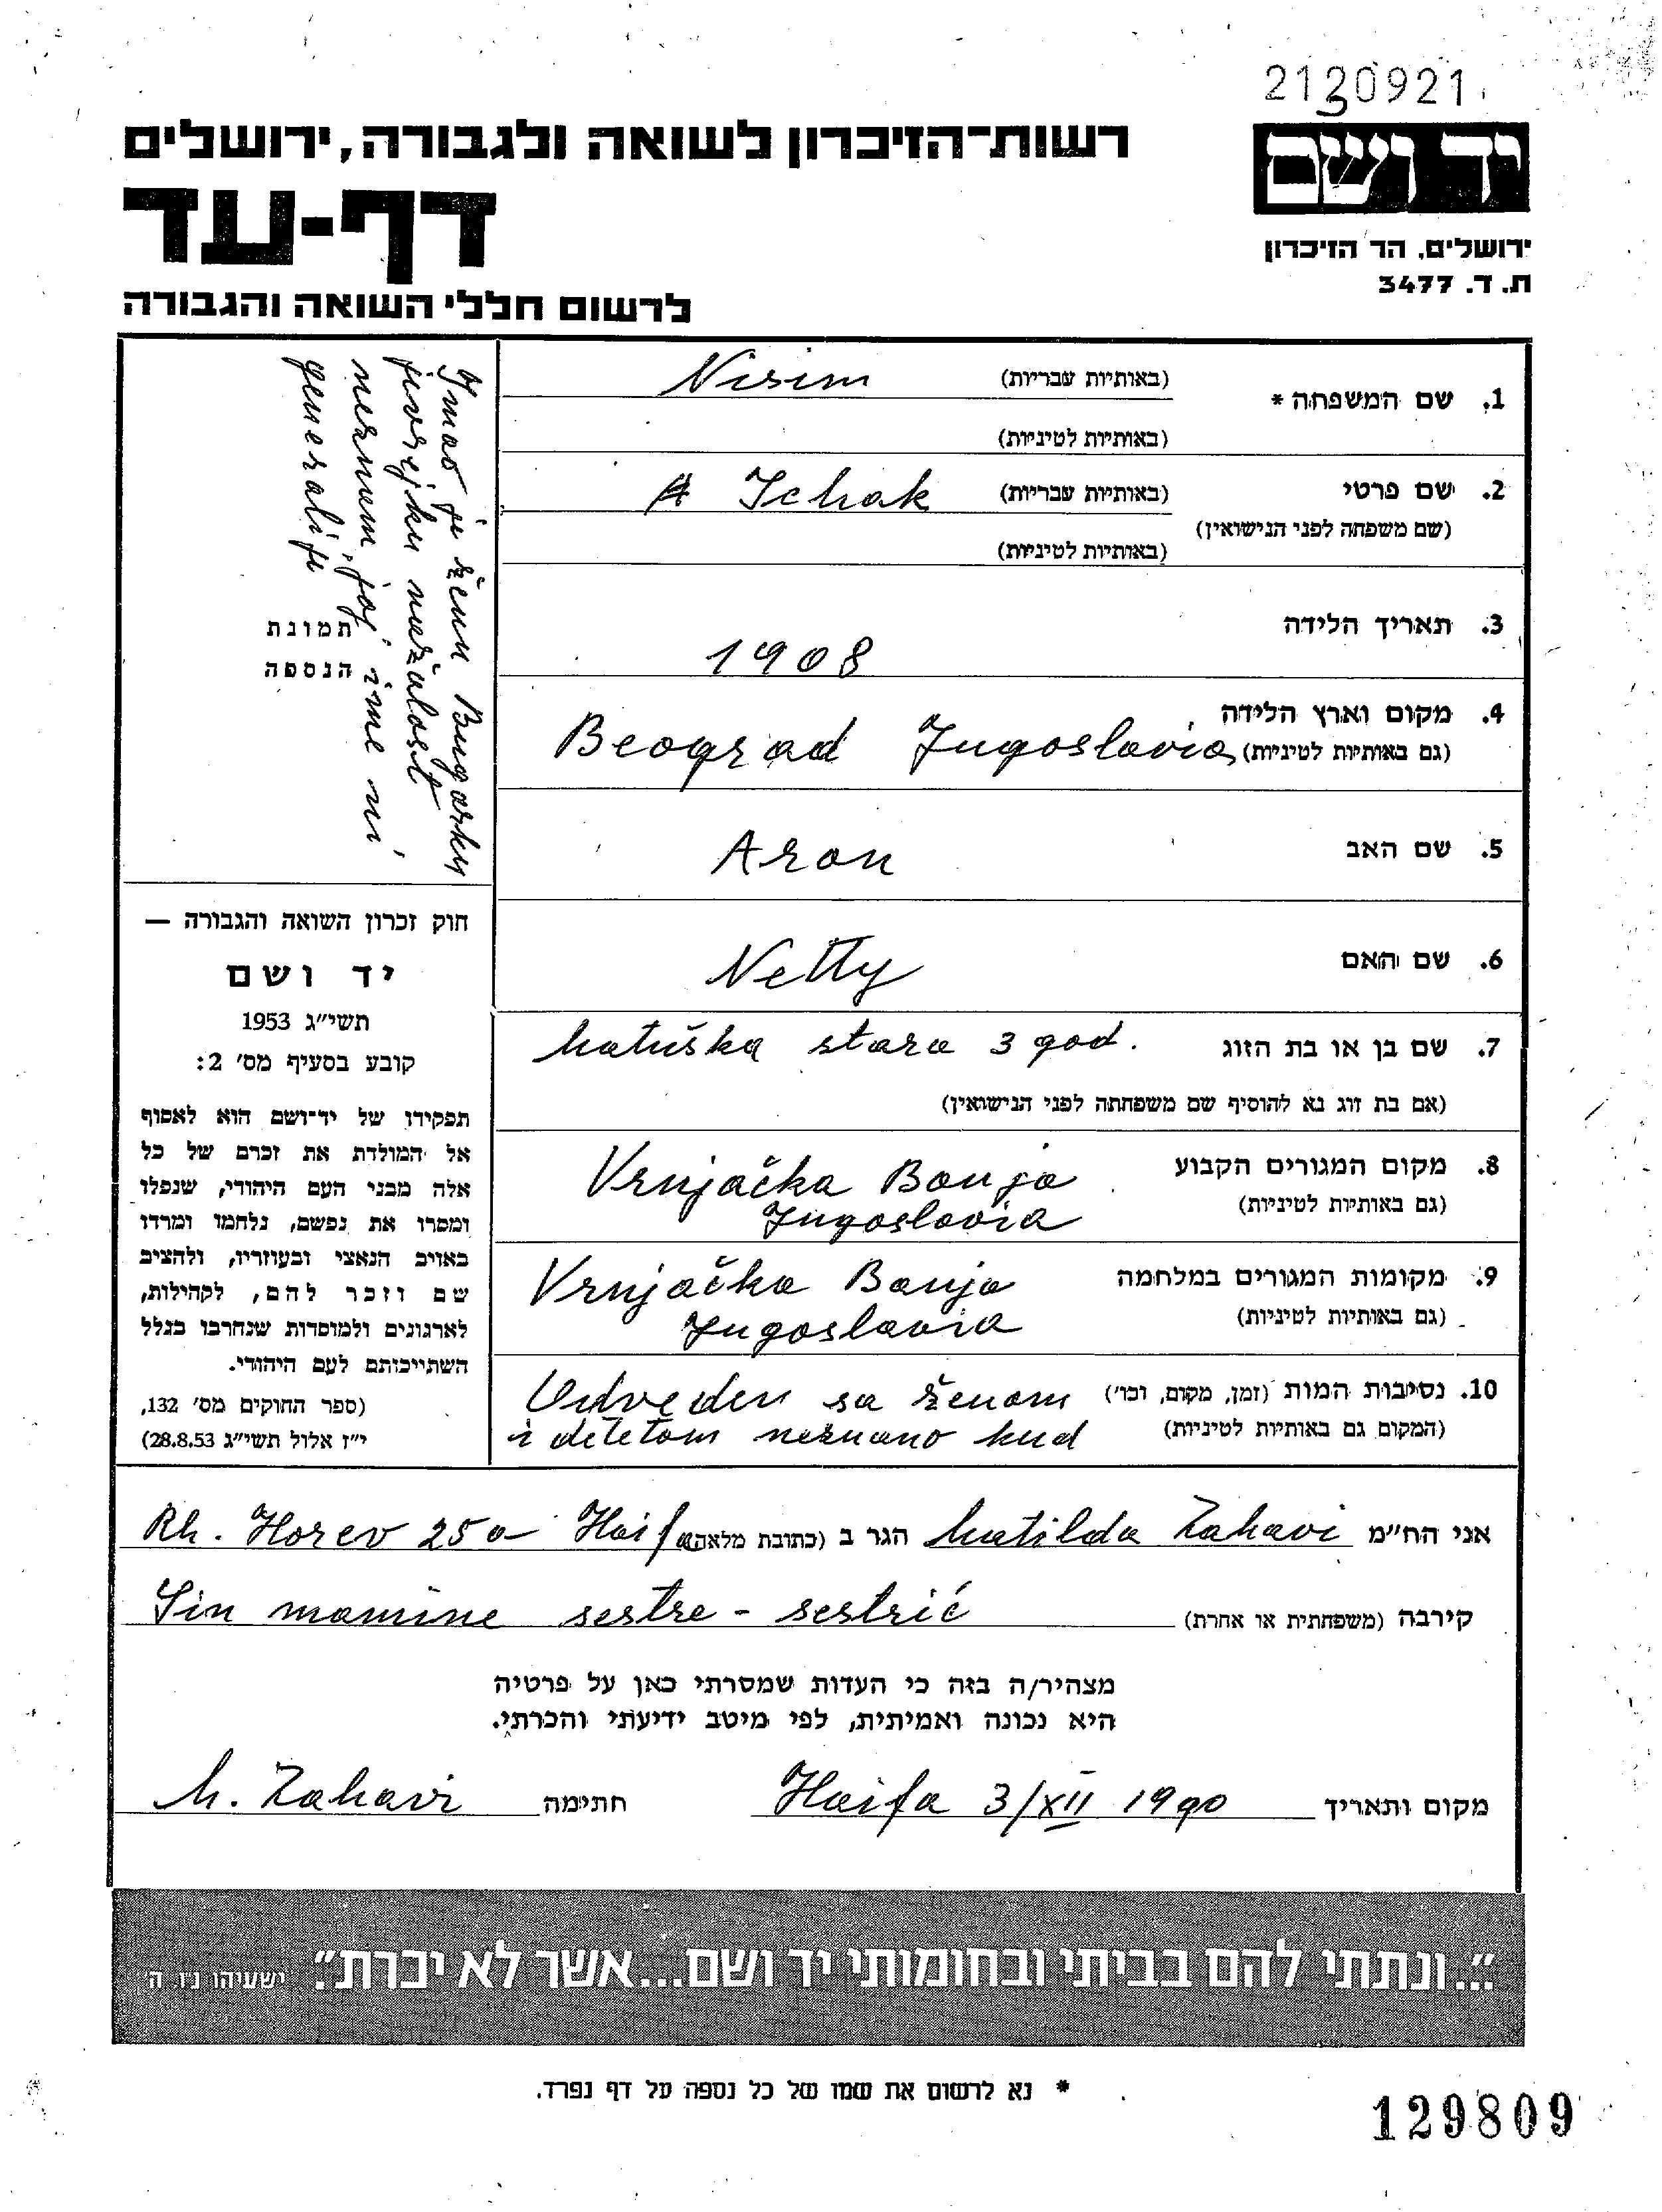 2130921
יד ושם
ירושלים, הר הזיכרון
ת. ד. 3477
רשות־הזיכרון לשואה ולגבורה, ירושלים
דף-עד
לרשום חללי השואה והגבורה
1. שם המשפחה *
(באותיות עבריות) Nisim
(באותיות לטיניות)
2. שם פרטי
(שם משפחה לפני הנישואין)
(באותיות עבריות) Ichak
(באותיות לטיניות)
3. תאריך הלידה
1908
4. מקום וארץ הלידה
(גם באותיות לטיניות)
Beograd Jugoslavia
5. שם האב
Aron
6. שם האם
Netty
7. שם בן או בת הזוג
Matuška stara 3 god.
(אם בת זוג נא להוסיף שם משפחתה לפני הנישואין)
8. מקום המגורים הקבוע
(גם באותיות לטיניות)
Vrnjačka Banja
Jugoslavia
9. מקומות המגורים במלחמה
(גם באותיות לטיניות)
Vrnjačka Banja
Jugoslavia
10. נסיבות המות (זמן, מקום, וכו')
(המקום גם באותיות לטיניות)
Odveden sa ženom
i detetom neznano kud
Imao je ženu Bugarku
jevrejku nažalost
neznam joj ime ni
generalije
תמונת
הנספה
חוק זכרון השואה והגבורה —
יד ושם
תשי״ג 1953
קובע בסעיף מס' 2:
תפקידו של יד־ושם הוא לאסוף
אל המולדת את זכרם של כל
אלה מבני העם היהודי, שנפלו
ומסרו את נפשם, נלחמו ומרדו
באויב הנאצי ובעוזריו, ולהציב
שם וזכר להם, לקהילות,
לארגונים ולמוסדות שנחרבו בגלל
השתייכותם לעם היהודי.
(ספר החוקים מס' 132,
י״ז אלול תשי״ג 28.8.53)
אני הח״מ Matilda Zahavi הגר ב (כתובת מלאה) Rh. Horev 25a Haifa
קירבה (משפחתית או אחרת) Sin mamine sestre - sestrić
מצהיר/ה בזה כי העדות שמסרתי כאן על פרטיה
היא נכונה ואמיתית, לפי מיטב ידיעתי והכרתי.
מקום ותאריך Haifa 3/XII 1990 חתימה M. Zahavi
"...ונתתי להם בביתי ובחומותי יד ושם...אשר לא יכרת". ישעיהו נ״ו, ה'
* נא לרשום את שמו של כל נספה על דף נפרד.
129809